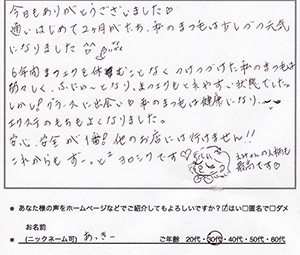 今日もありがとうございました♡
通いはじめて2ヶ月がたち、私のまつ毛は少しづつ元気
になりました
6年間まつエクを休むことなくつけつづけた私のまつ毛は
弱々しく、とれやすい状態でした。
しかし！グラスに出会い♡私のまつ毛は健康になり、
エクステのもちもよくなりました。
安心、安全が1番！他のお店には行けません!!
これからもずーっとヨロシクです♡
最高です♡
● あなた様の声をホームページなどでご紹介してもよろしいですか？☑はい□匿名で□ダメ
お名前
(ニックネーム可) あ、きー ご年齢 20代・30代・40代・50代・60代